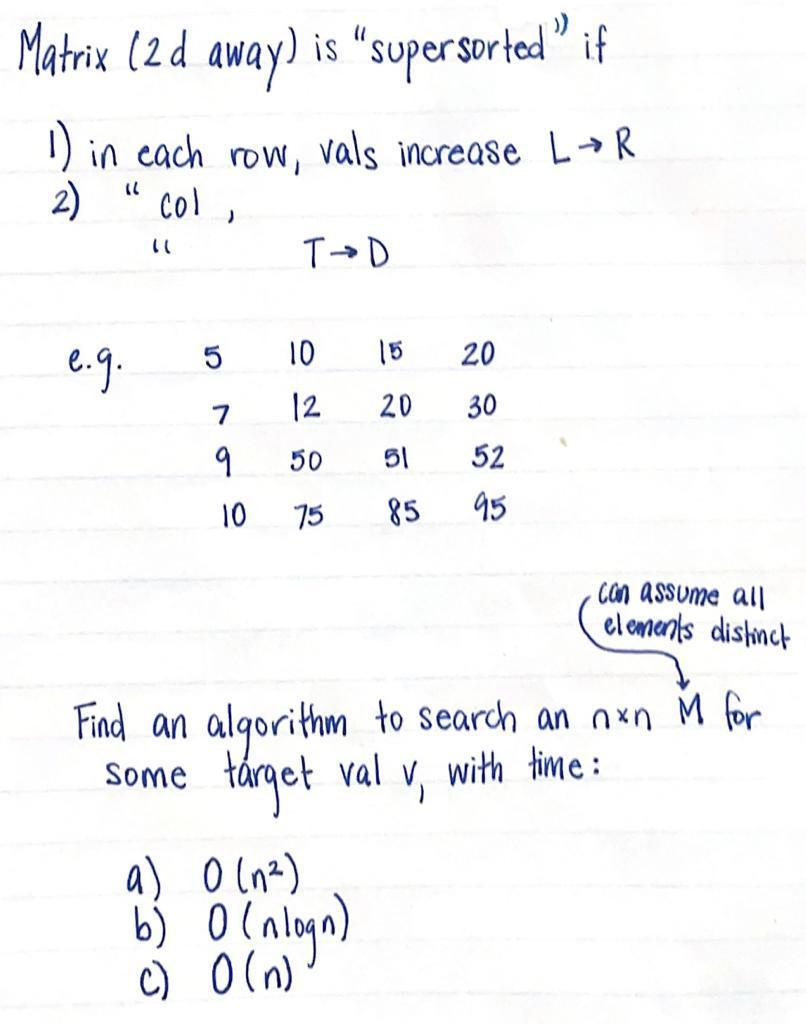 Matrix (2d away) is "supersorted" if
1) in each row, vals increase L → R
2) " col ,
" T → D
e.g. 5 10 15 20
7 12 20 30
9 50 51 52
10 75 85 95
can assume all
elements distinct
Find an algorithm to search an n×n M for
some target val v, with time:
a) O(n²)
b) O(nlogn)
c) O(n)